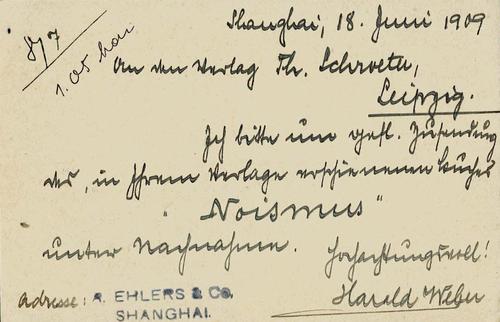 Shanghai, 18. Juni 1909
An den Verlag Th. Schroeter,
Leipzig.
Ich bitte um gefl. Zusendung
des, in Ihrem Verlage erschienenen Buches
"Noismus"
unter Nachnahme. Hochachtungsvoll!
Adresse: A. EHLERS & Co. Harald Weber
SHANGHAI.